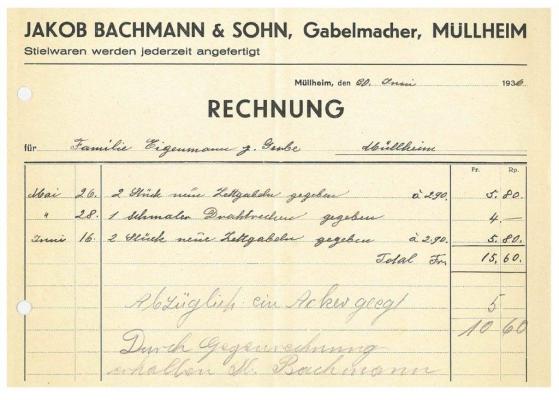 JAKOB BACHMANN & SOHN, Gabelmacher, MÜLLHEIM
Stielwaren werden jederzeit angefertigt
Müllheim, den 20. Juni 1936
RECHNUNG
für Familie Eigenmann z. Gerbe Müllheim
Fr. Rp.
Mai 26. 2 Stück neue Zettgabeln gegeben à 2.90 5.80.
" 28. 1 schmaler Drahtrechen gegeben 4.—
Juni 16. 2 Stück neue Zettgabeln gegeben à 2.90. 5.80.
Total Fr. 15,60.
Abzüglich ein Acker geegt 5
10 60
Durch Gegenrechnung
erhalten Bachmann